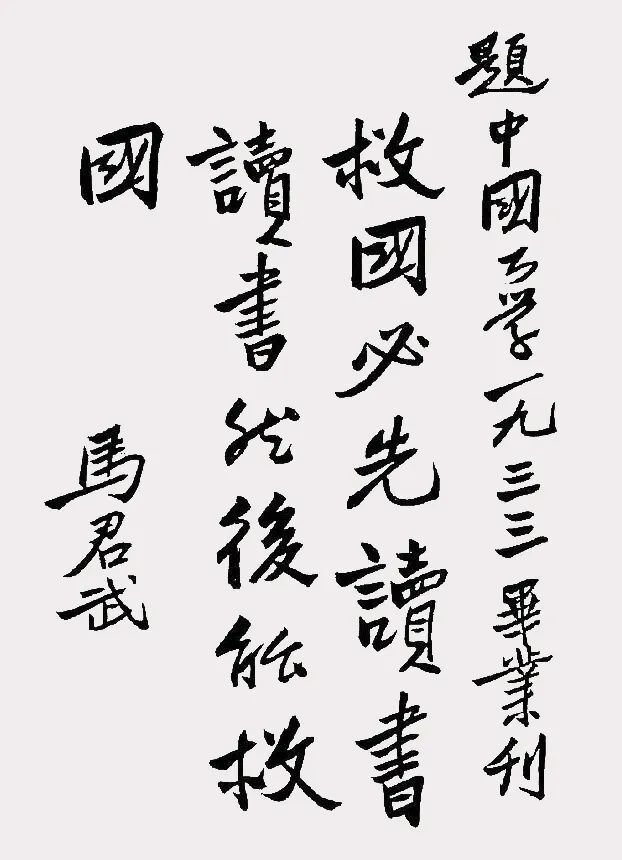 題中國公學一九三三畢業刊
救國必先讀書
讀書然後能救
國
馬君武